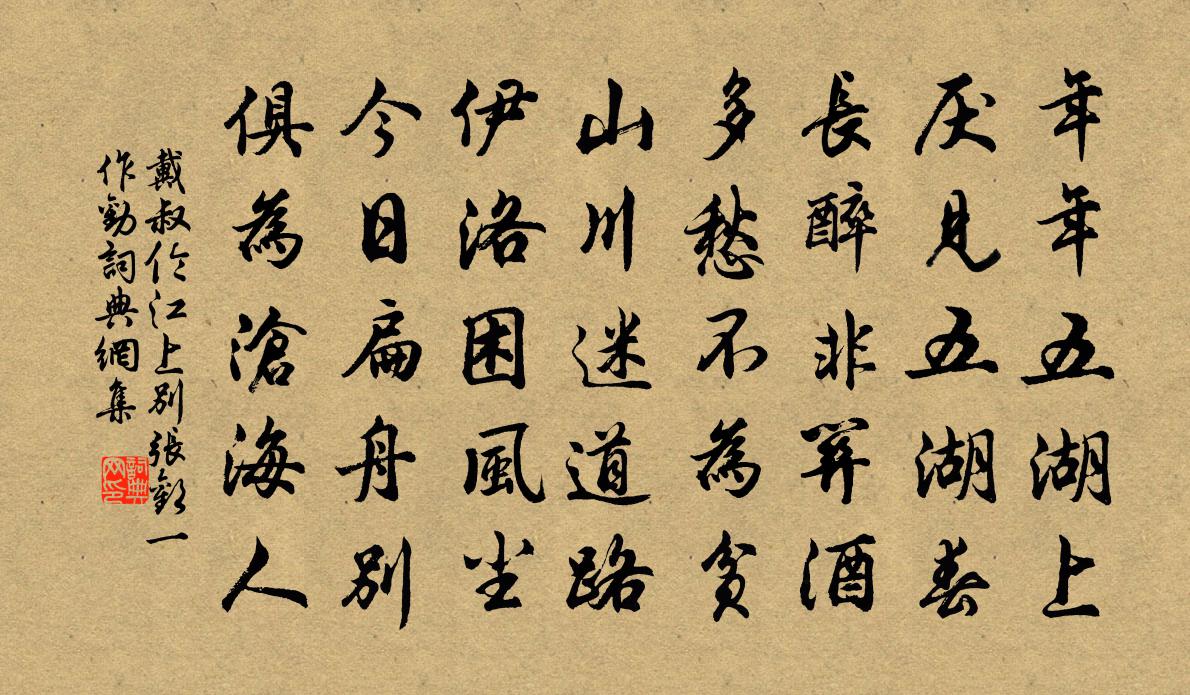 年年五湖上
厌見五湖春
長醉非関酒
多愁不為貧
山川迷道路
伊洛困風尘
今日扁舟別
俱為滄海人
戴叔伦江上別張歡一
作勸詞典網集
詞典
网印